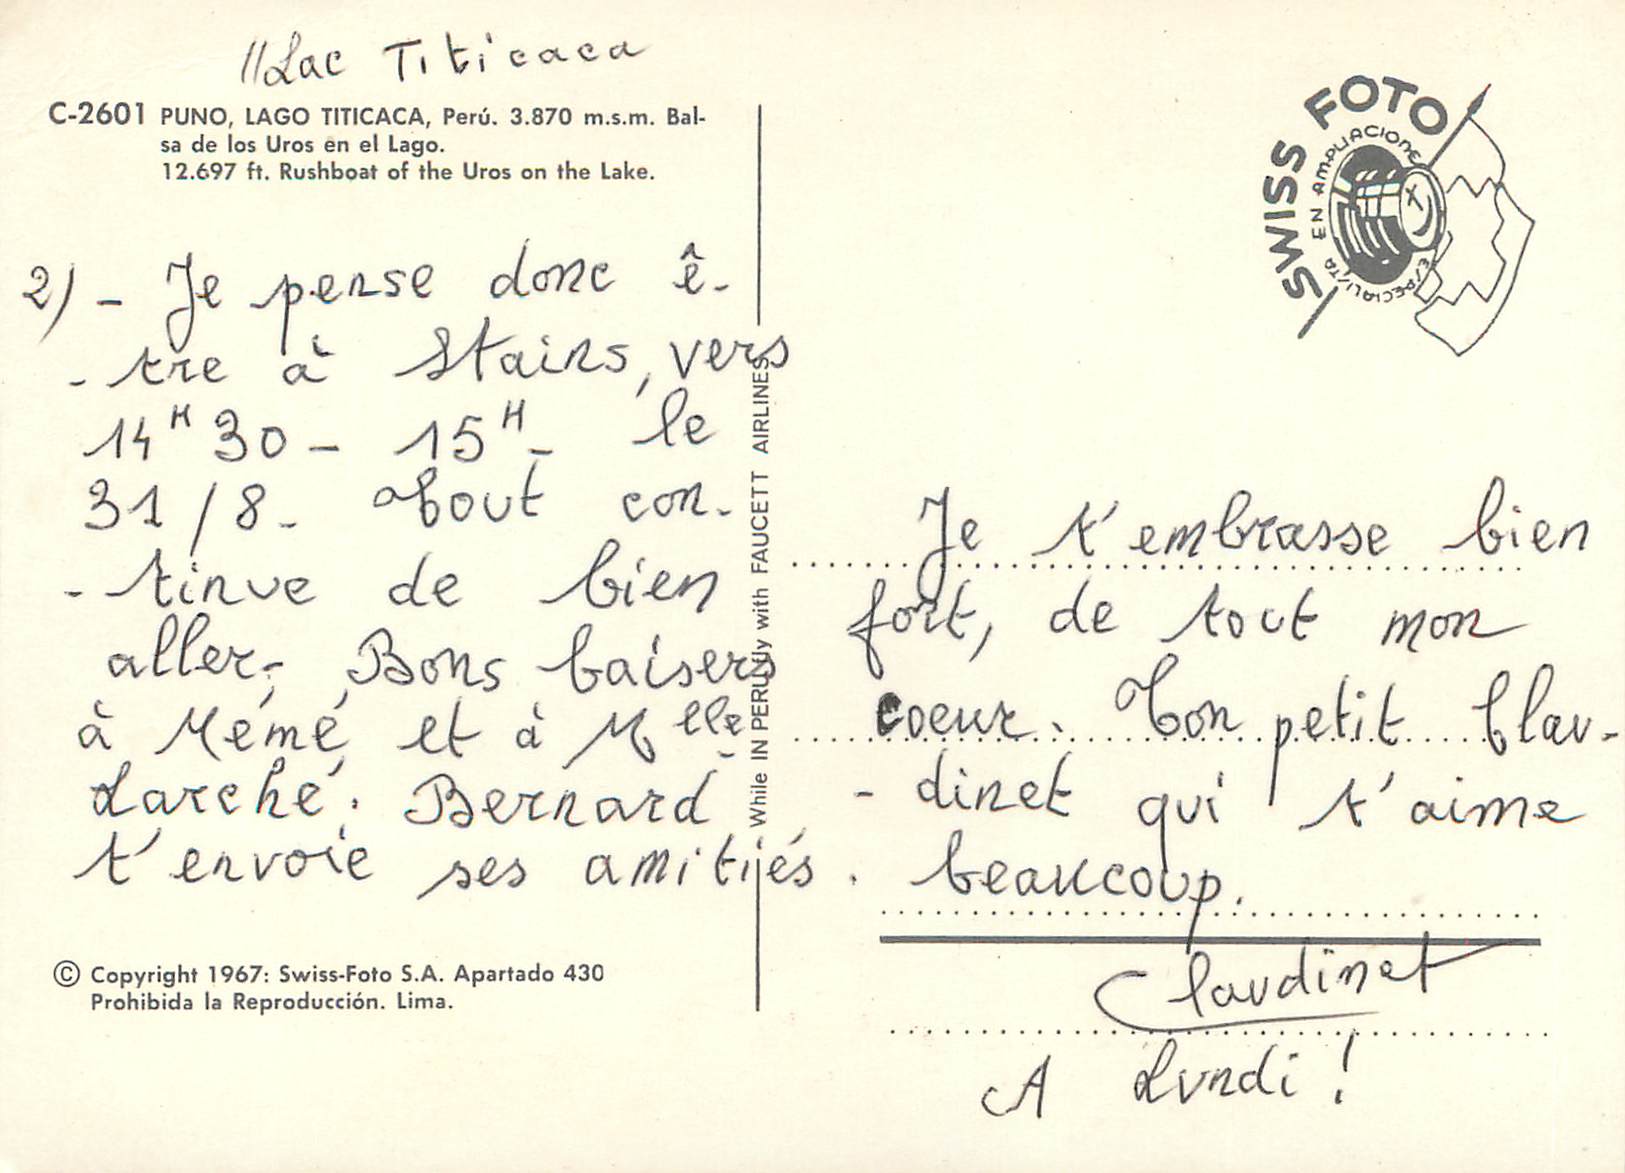 //Lac Titicaca
C-2601 PUNO, LAGO TITICACA, Perú. 3.870 m.s.m. Bal-
sa de los Uros en el Lago.
12.697 ft. Rushboat of the Uros on the Lake.
2) - Je pense donc ê-
-tre à Stains, vers
14H30 - 15H- le
31/8- Tout con-
-tinue de bien
aller; Bons baisers
à Mémé, et à Mlle
Larché. Bernard
t'envoie ses amitiés.
© Copyright 1967: Swiss-Foto S.A. Apartado 430
Prohibida la Reproducción. Lima.
While IN PERU fly with FAUCETT AIRLINES
SWISS FOTO
ESPECIALISTA EN AMPLIACIONES
Je t'embrasse bien
fort, de tout mon
coeur. Ton petit Clau-
-dinet qui t'aime
beaucoup.
Claudinet
A Lundi !